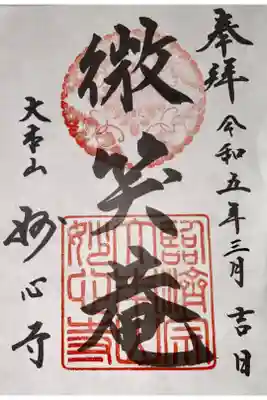 奉拝 令和五年三月吉日
微笑庵
大本山 妙心寺
臨済宗
大本山
妙心寺